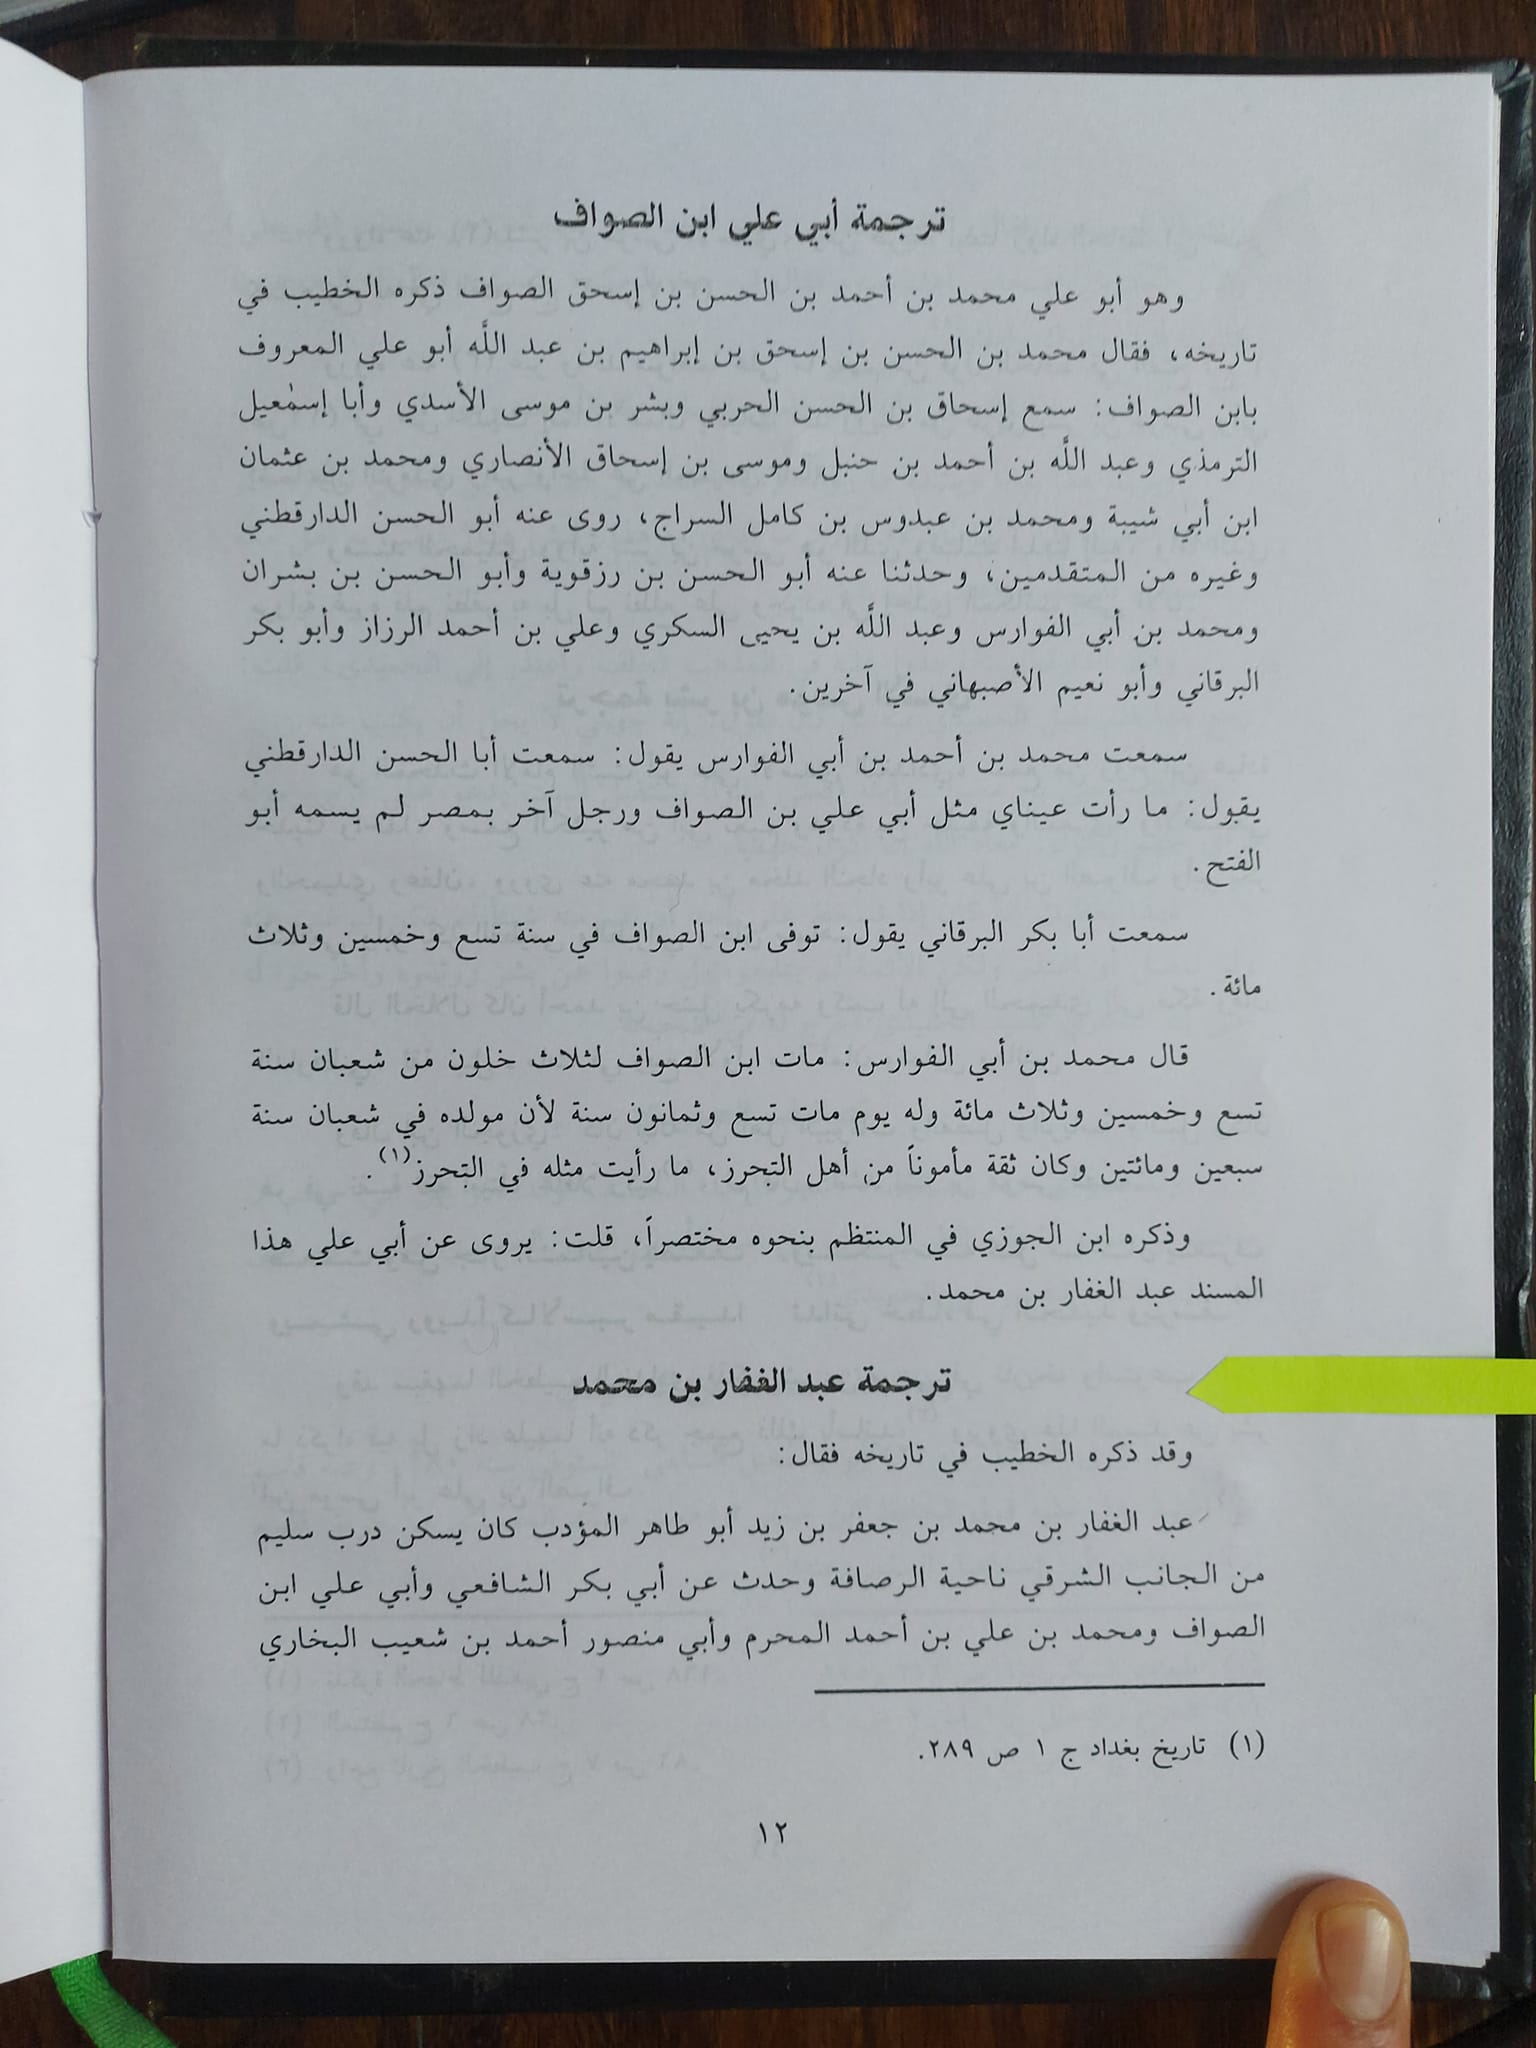 ترجمة أبي علي ابن الصواف
وهو أبو علي محمد بن أحمد بن الحسن بن إسحق الصواف ذكره الخطيب في
تاريخه، فقال محمد بن الحسن بن إسحق بن إبراهيم بن عبد اللَّه أبو علي المعروف
بابن الصواف: سمع إسحاق بن الحسن الحربي وبشر بن موسى الأسدي وأبا إسمٰعيل
الترمذي وعبد اللَّه بن أحمد بن حنبل وموسى بن إسحاق الأنصاري ومحمد بن عثمان
ابن أبي شيبة ومحمد بن عبدوس بن كامل السراج، روى عنه أبو الحسن الدارقطني
وغيره من المتقدمين، وحدثنا عنه أبو الحسن بن رزقوية وأبو الحسن بن بشران
ومحمد بن أبي الفوارس وعبد اللَّه بن يحيى السكري وعلي بن أحمد الرزاز وأبو بكر
البرقاني وأبو نعيم الأصبهاني في آخرين.
سمعت محمد بن أحمد بن أبي الفوارس يقول: سمعت أبا الحسن الدارقطني
يقول: ما رأت عيناي مثل أبي علي بن الصواف ورجل آخر بمصر لم يسمه أبو
الفتح.
سمعت أبا بكر البرقاني يقول: توفى ابن الصواف في سنة تسع وخمسين وثلاث
مائة.
قال محمد بن أبي الفوارس: مات ابن الصواف لثلاث خلون من شعبان سنة
تسع وخمسين وثلاث مائة وله يوم مات تسع وثمانون سنة لأن مولده في شعبان سنة
سبعين ومائتين وكان ثقة مأموناً من أهل التحرز، ما رأيت مثله في التحرز(١).
وذكره ابن الجوزي في المنتظم بنحوه مختصراً، قلت: يروى عن أبي علي هذا
المسند عبد الغفار بن محمد.
ترجمة عبد الغفار بن محمد
وقد ذكره الخطيب في تاريخه فقال:
عبد الغفار بن محمد بن جعفر بن زيد أبو طاهر المؤدب كان يسكن درب سليم
من الجانب الشرقي ناحية الرصافة وحدث عن أبي بكر الشافعي وأبي علي ابن
الصواف ومحمد بن علي بن أحمد المحرم وأبي منصور أحمد بن شعيب البخاري
(١) تاريخ بغداد ج ١ ص ٢٨٩.
١٢